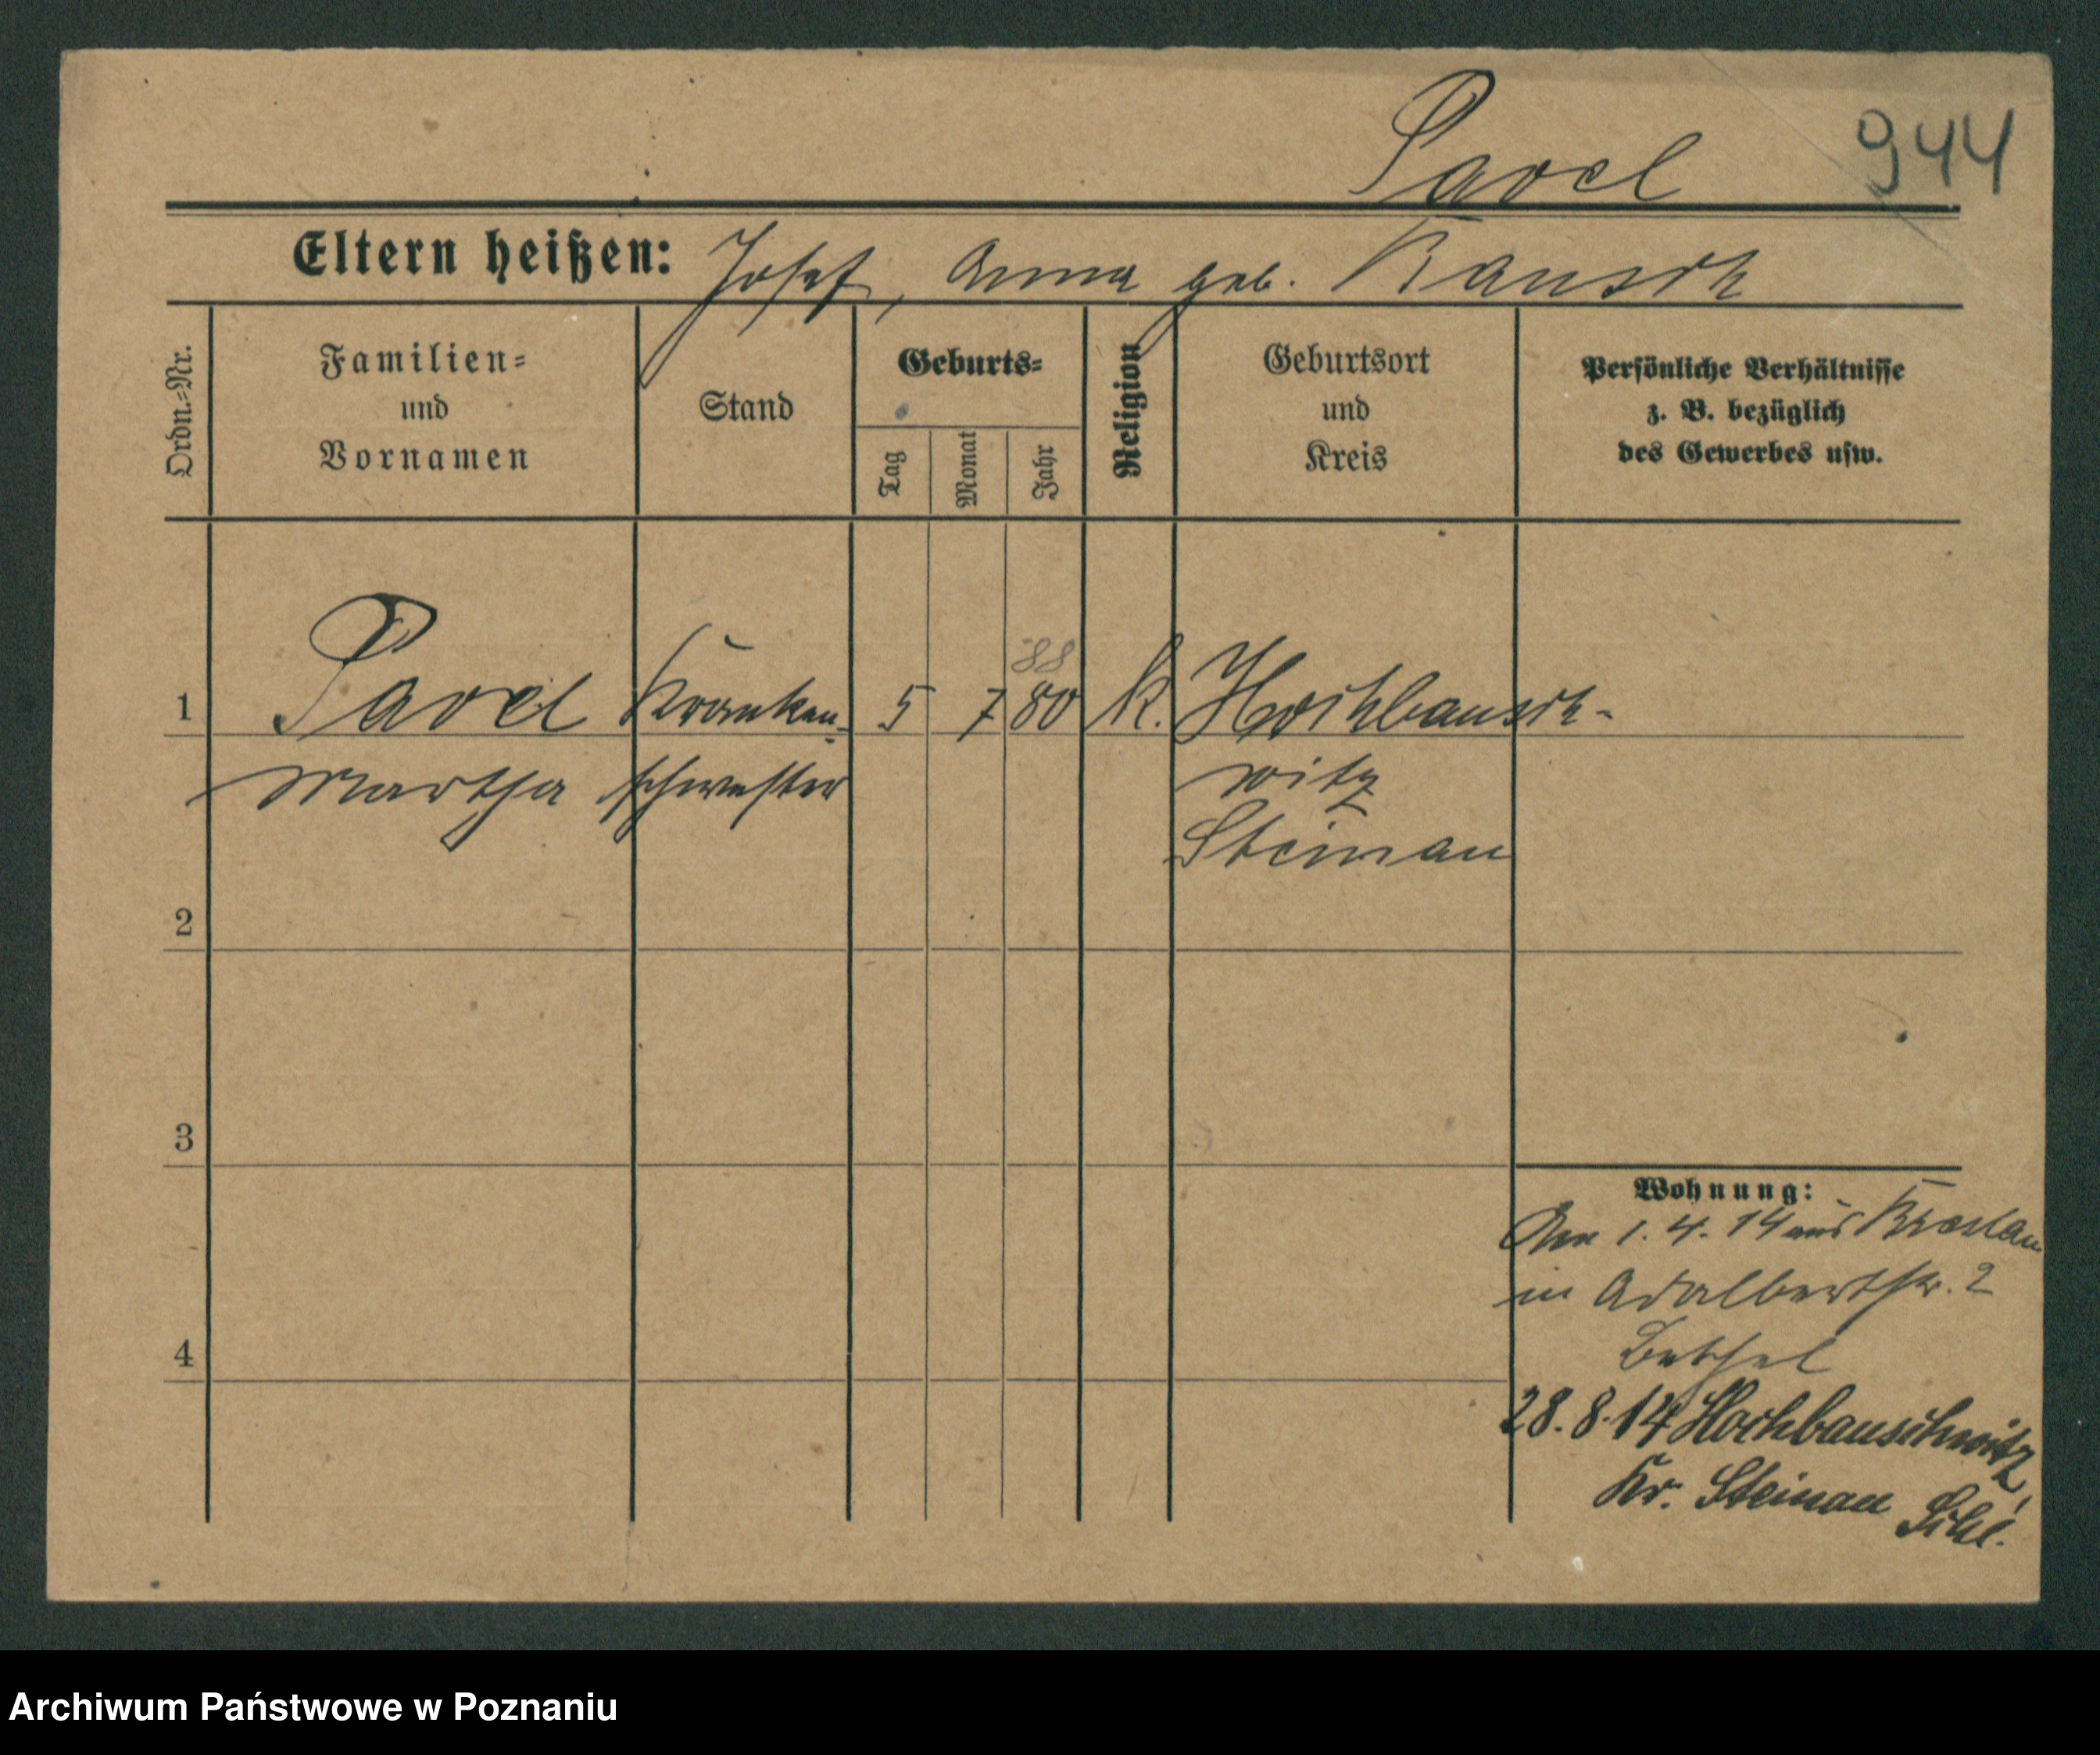 Pavel 944
Eltern heißen: Josef, Anna geb. Rausch
Ordn.=Nr.
Familien=
und
Vornamen
Stand
Geburts=
Tag
Monat
Jahr
Religion
Geburtsort
und
Kreis
Persönliche Verhältnisse
z. B. bezüglich
des Gewerbes usw.
88
1 Pavel Kranken- 5 7 80 k. Hochbausch-
Martha schwester witz
Steinau
2
3
4
Wohnung:
1. 4. 14 aus Breslau
in Adalbertstr. 2
Bethel
28. 8. 14 Hochbauschwitz,
Kr. Steinau Schl.
Archiwum Państwowe w Poznaniu